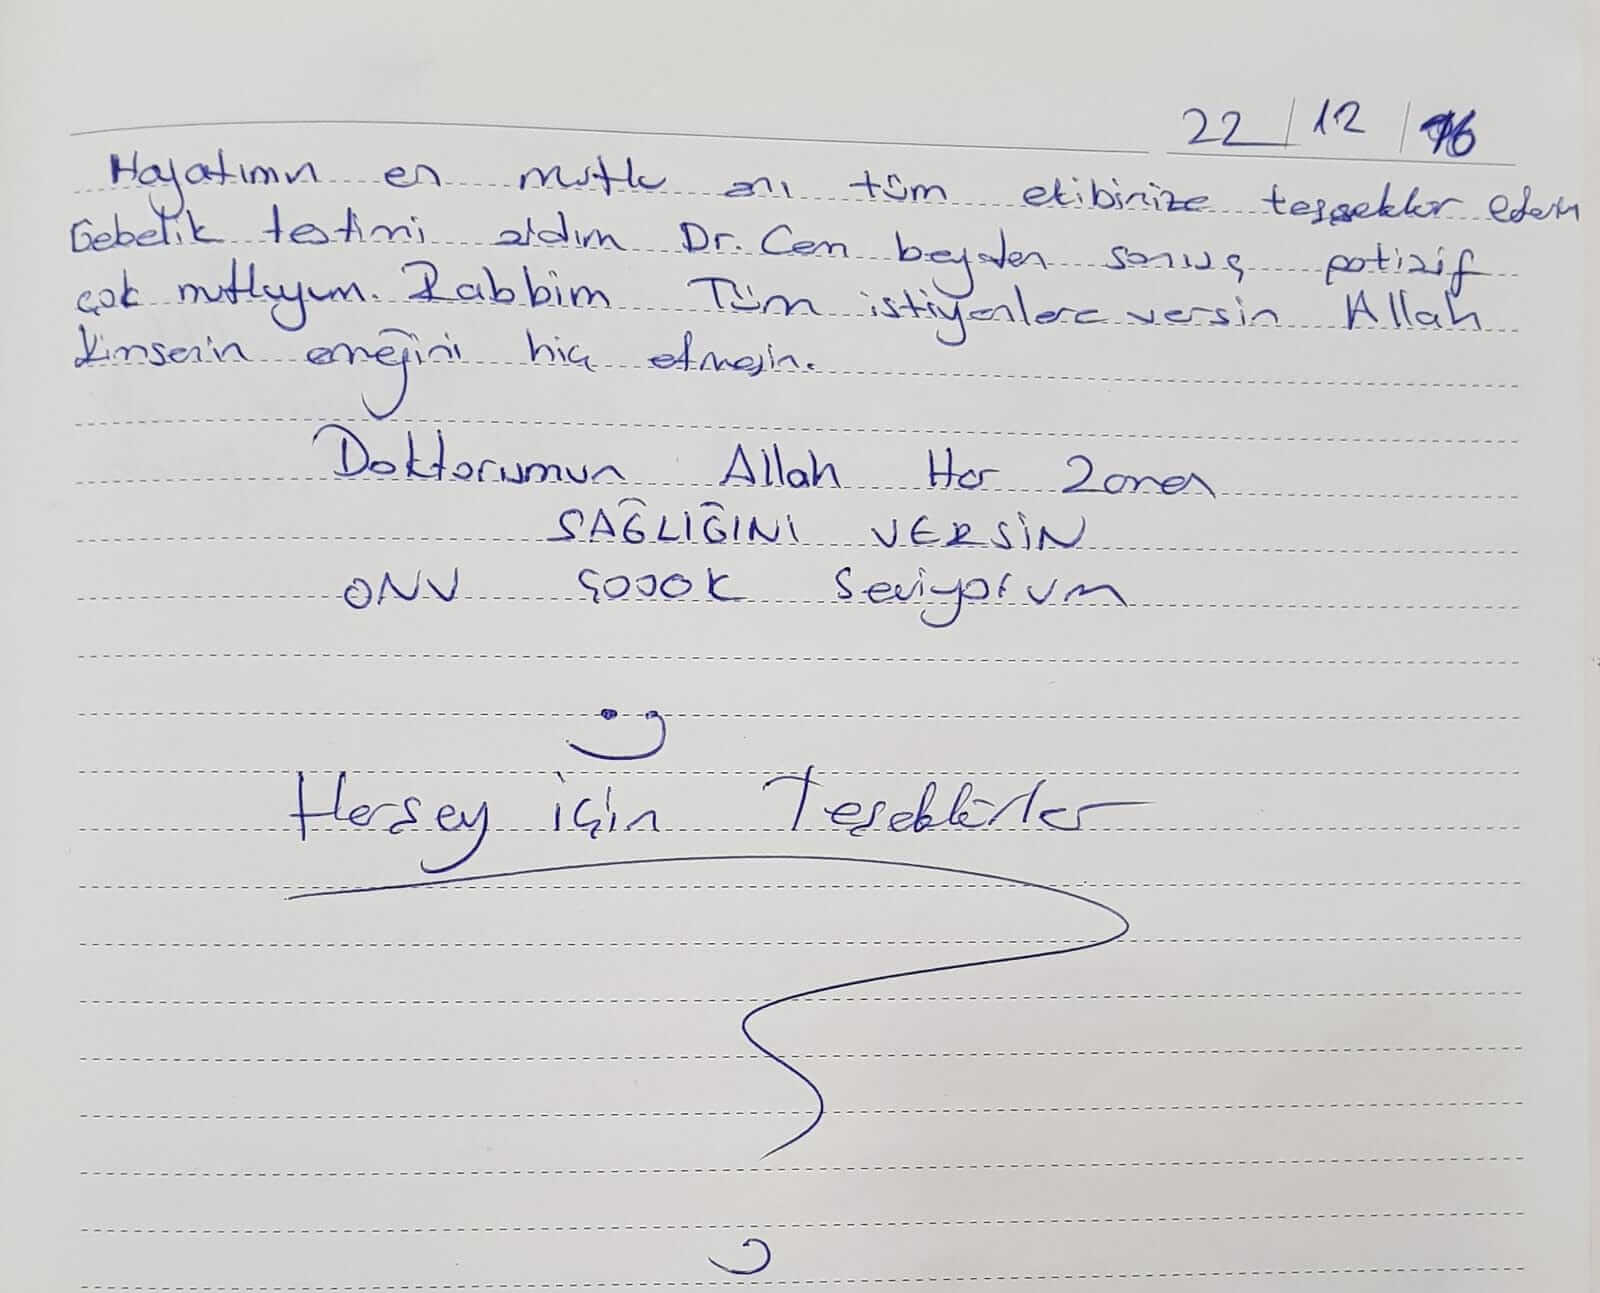 22/12/16
Hayatımın en mutlu anı tüm ekibinize teşşekkür ederim
Gebelik testimi aldım Dr. Cem beyden sonuç potizif
çok mutluyum. Rabbim Tüm istiyenlere versin Allah
kimsenin emeğini hiç etmesin.
Doktorumun Allah Her Zaman
SAĞLIĞINI VERSİN
ONU ÇOOOK Seviyorum
Herşey için Teşekkürler